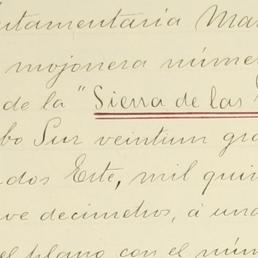 utamentaria Mar
mojonera núme
de la "Sierra de las
bo Sur veintum gra
dos Este, mil qui
ve decimetros, á una
el plano con el núm